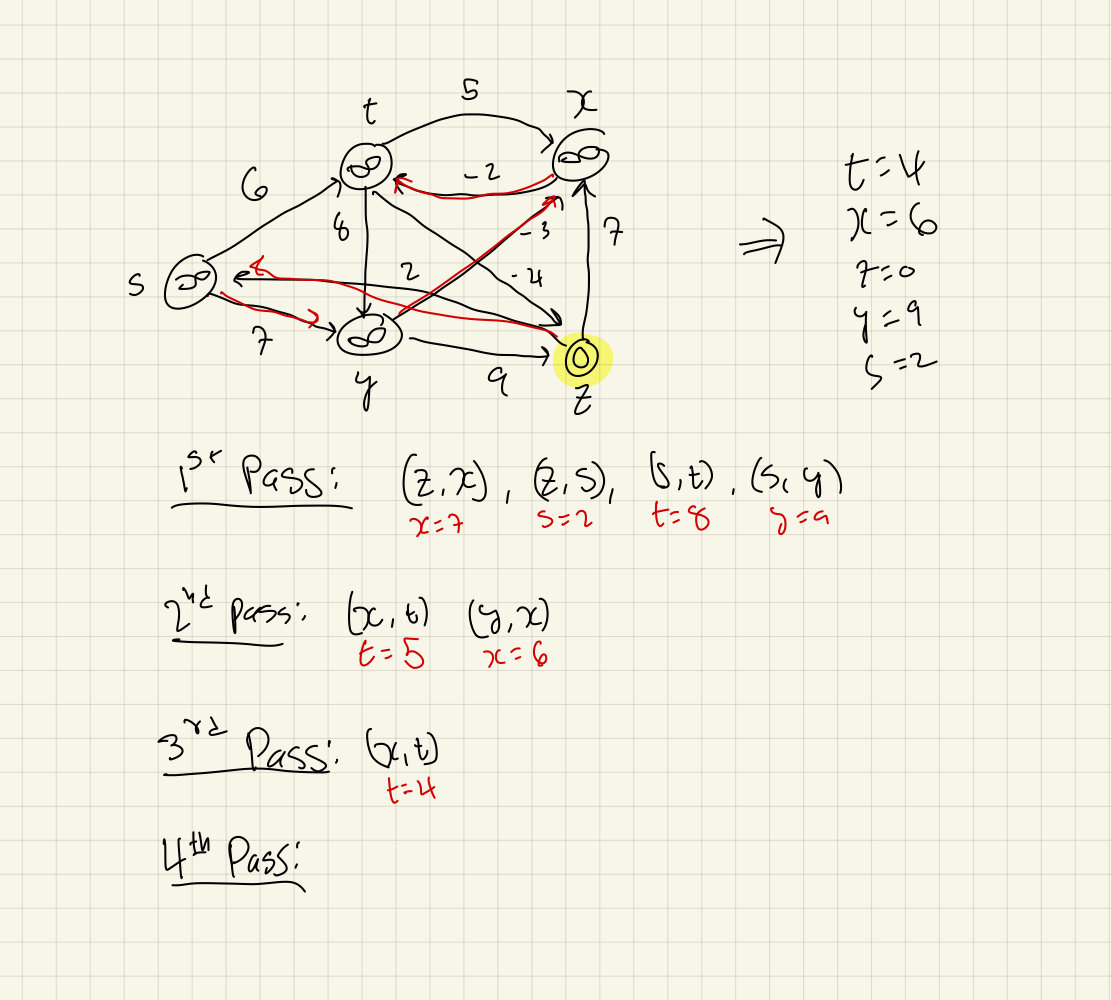 5
t x
6 -2 t=4
8 -3 7 x=6
s 2 -4 ⇒ z=0
7 y=9
y 9 z s=2
∞ ∞ ∞ ∞ 0
1st Pass: (z,x), (z,s), (s,t), (s,y)
x=7 s=2 t=8 y=9
2nd pass: (x,t) (y,x)
t=5 x=6
3rd Pass: (x,t)
t=4
4th Pass: